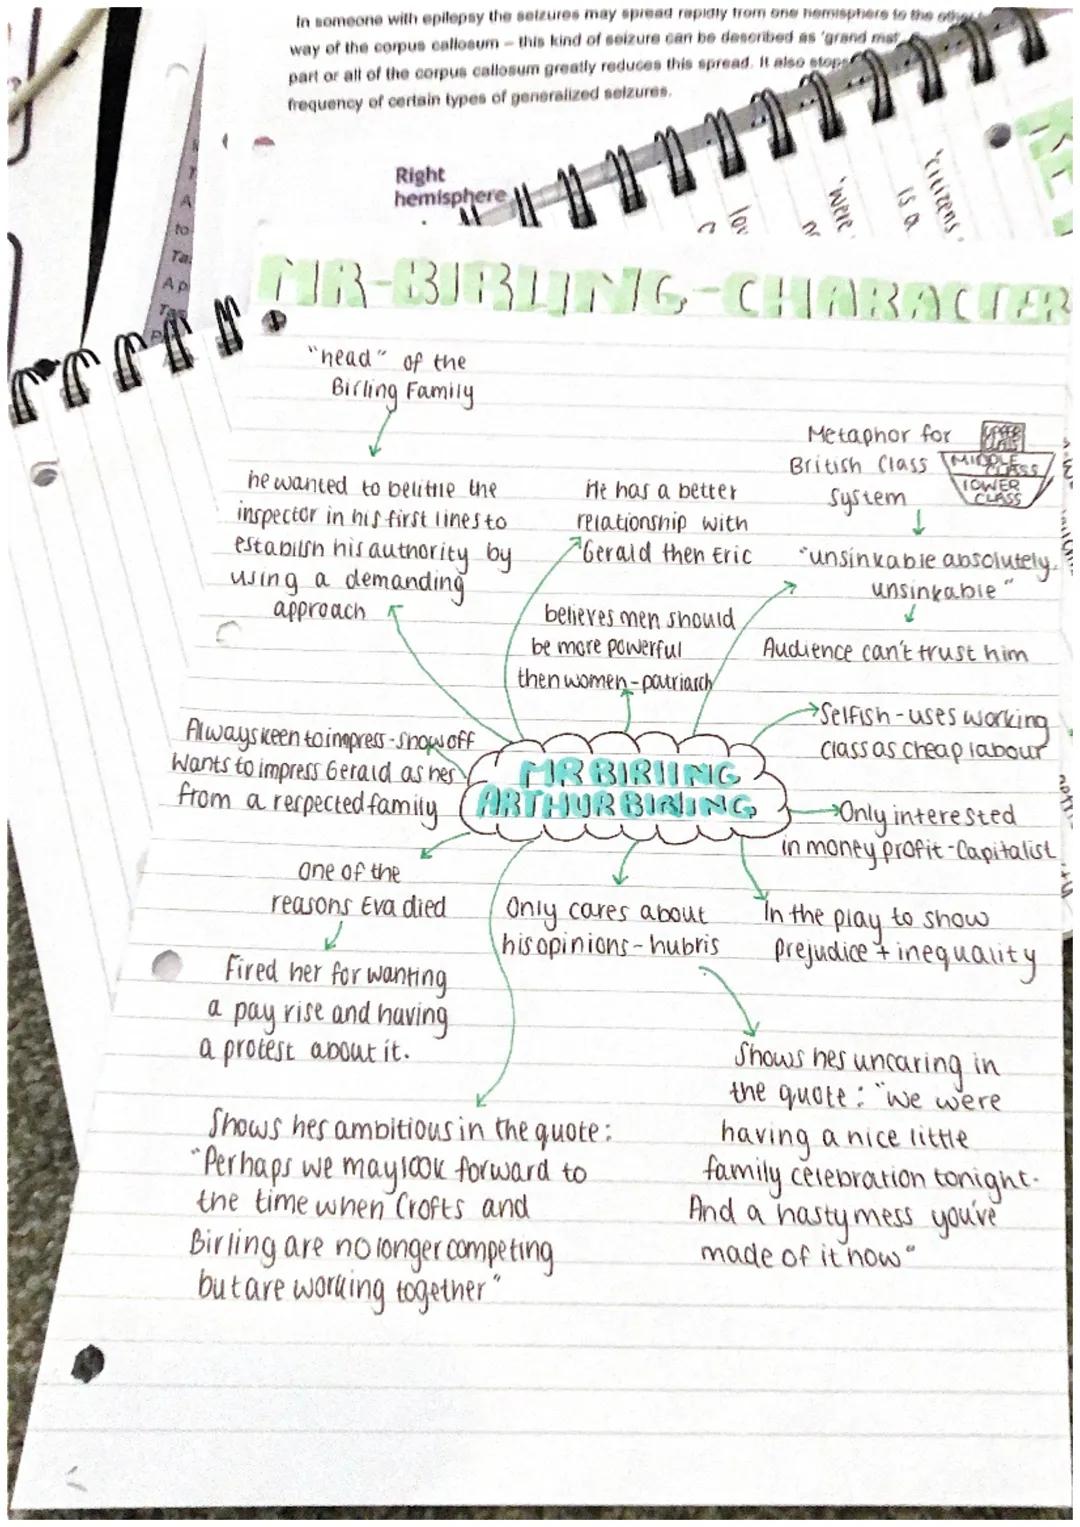 In someone with epilepsy the seizures may spread rapidly from one hemisphere to the other
way of the corpus callosum – this kind of seizure can be described as 'grand mal'
part or all of the corpus callosum greatly reduces this spread. It also stops
frequency of certain types of generalized seizures.
Right
hemisphere
'were
is a
'citizens.
MR-BIRLING-CHARACTER
"head" of the
Birling Family
he wanted to belittle the
inspector in his first lines to
establish his authority by
using a demanding
approach
He has a better
relationship with
Gerald then Eric
Metaphor for
British Class
System
UPPER
CLASS
MIDDLE
CLASS
LOWER
CLASS
"unsinkable absolutely
unsinkable"
Audience can't trust him
believes men should
be more powerful
then women - patriarch
Always keen to impress - show off
Wants to impress Gerald as hes
from a respected family
MR BIRLING
ARTHUR BIRLING
Selfish - uses working
class as cheap labour
Only interested
in money profit - Capitalist
one of the
reasons Eva died
Fired her for wanting
a pay rise and having
a protest about it.
Only cares about
his opinions - hubris
In the play to show
prejudice + inequality
Shows hes uncaring in
the quote: "we were
having a nice little
family celebration tonight.
And a nasty mess you've
made of it now"
Shows hes ambitious in the quote:
"Perhaps we may look forward to
the time when Crofts and
Birling are no longer competing
but are working together"